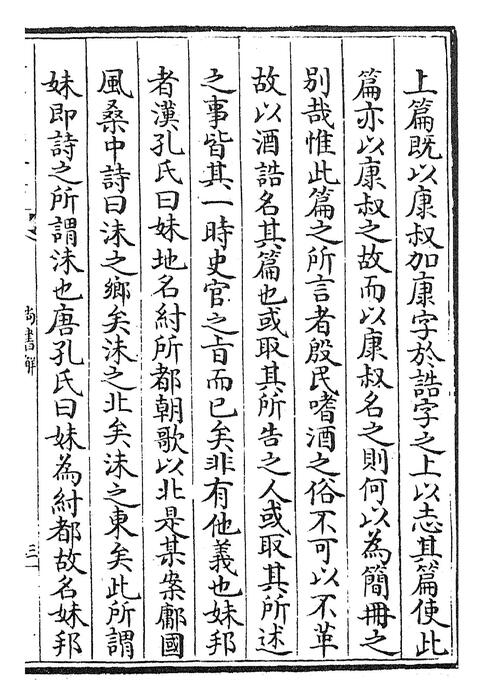 上篇既以康叔加康字於誥字之上以志其篇使此
篇亦以康叔之故而以康叔名之則何以為簡冊之
別哉惟此篇之所言者殷民嗜酒之俗不可以不革
故以酒誥名其篇也或取其所告之人或取其所述
之事皆其一時史官之旨而已矣非有他義也妹邦
者漢孔氏曰妹地名紂所都朝歌以北是某案鄘國
風桑中詩曰沬之鄉矣沬之北矣沬之東矣此所謂
妹即詩之所謂沬也唐孔氏曰妹為紂都故名妹邦
尚書解